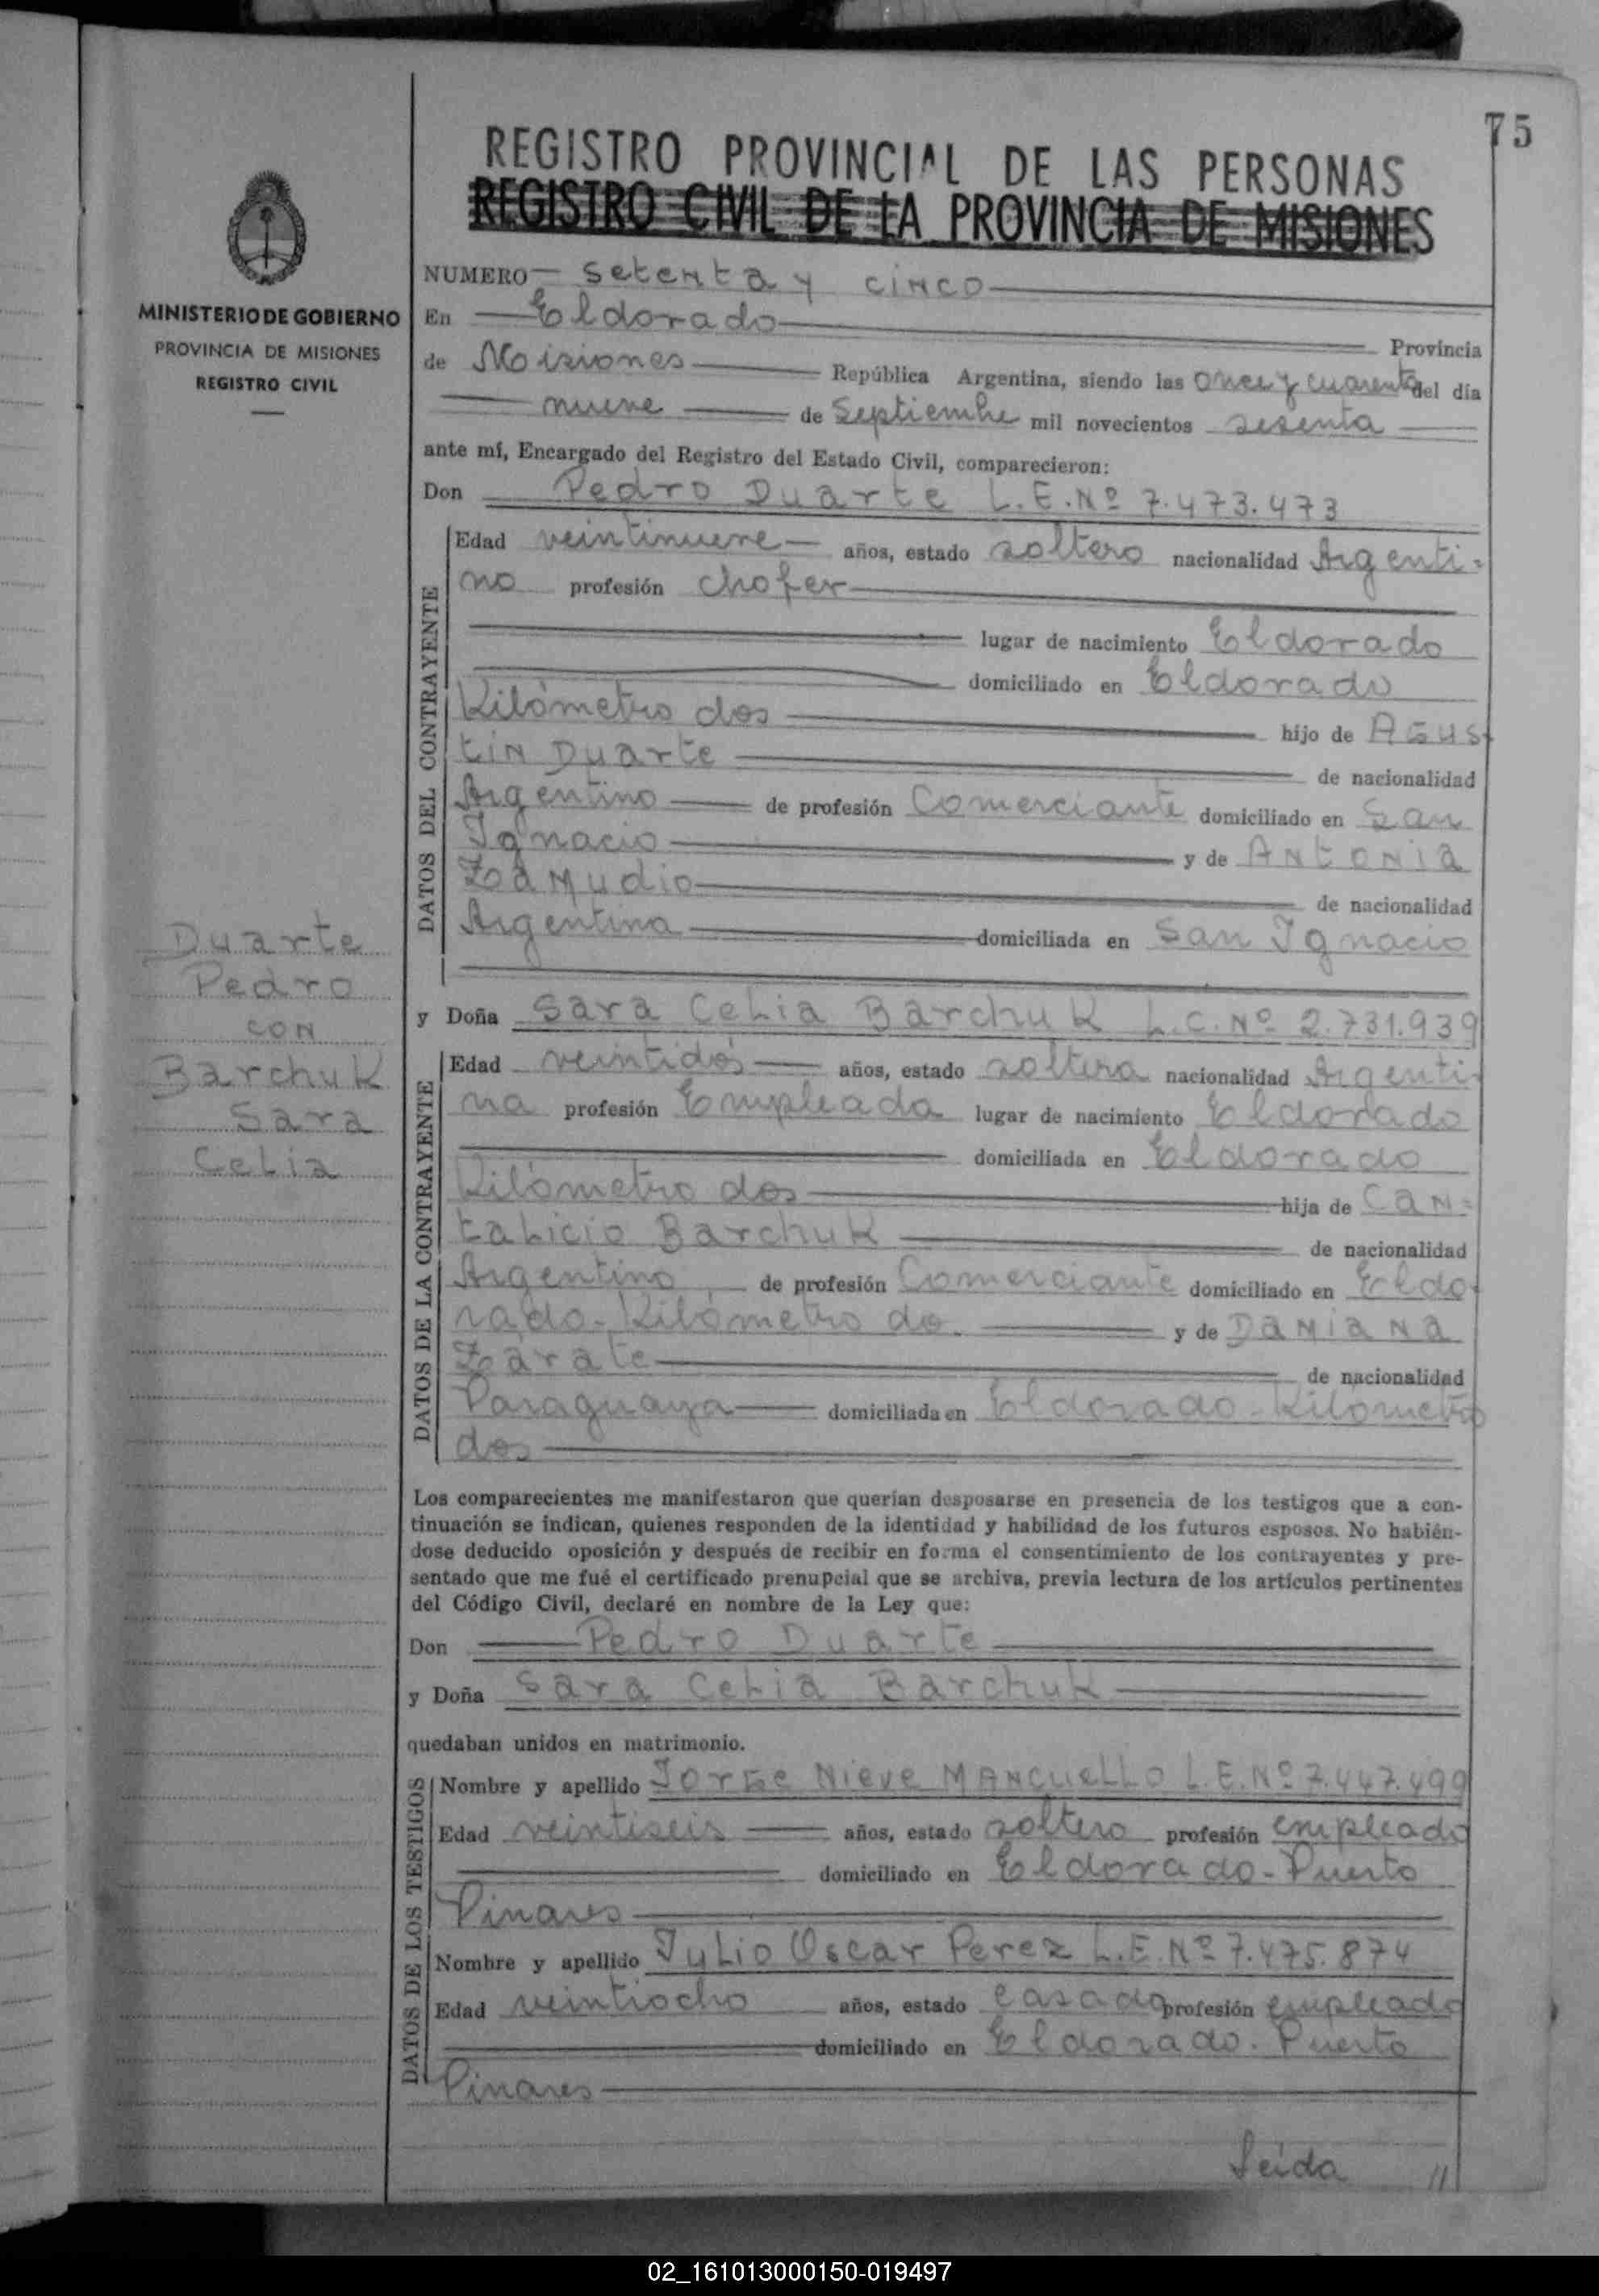 75
REGISTRO PROVINCIAL DE LAS PERSONAS
REGISTRO CIVIL DE LA PROVINCIA DE MISIONES
MINISTERIO DE GOBIERNO
PROVINCIA DE MISIONES
REGISTRO CIVIL
NUMERO setenta y cinco
En Eldorado
Provincia
de Misiones República Argentina, siendo las once y cuarenta del día
nueve de Septiembre mil novecientos sesenta
ante mí, Encargado del Registro del Estado Civil, comparecieron:
Don Pedro Duarte L.E.Nº 7.473.473
DATOS DEL CONTRAYENTE
Edad veintinueve años, estado soltero nacionalidad Argenti-
no profesión chofer
lugar de nacimiento Eldorado
domiciliado en Eldorado
Kilómetro dos hijo de Agus-
tin Duarte de nacionalidad
Argentino de profesión Comerciante domiciliado en San
Ignacio y de Antonia
Zamudio de nacionalidad
Argentina domiciliada en San Ignacio
Duarte
Pedro
con
Barchuk
Sara
Celia
y Doña Sara Celia Barchuk L.C.Nº 2.731.939
DATOS DE LA CONTRAYENTE
Edad veintidós años, estado soltera nacionalidad Argenti-
na profesión Empleada lugar de nacimiento Eldorado
domiciliada en Eldorado
Kilómetro dos hija de Can-
talicio Barchuk de nacionalidad
Argentino de profesión Comerciante domiciliado en Eldo-
rado-Kilómetro do. y de Damiana
Zárate de nacionalidad
Paraguaya domiciliada en Eldorado-Kilómetro
dos
Los comparecientes me manifestaron que querían desposarse en presencia de los testigos que a con-
tinuación se indican, quienes responden de la identidad y habilidad de los futuros esposos. No habién-
dose deducido oposición y después de recibir en forma el consentimiento de los contrayentes y pre-
sentado que me fué el certificado prenupcial que se archiva, previa lectura de los artículos pertinentes
del Código Civil, declaré en nombre de la Ley que:
Don Pedro Duarte
y Doña Sara Celia Barchuk
quedaban unidos en matrimonio.
DATOS DE LOS TESTIGOS
Nombre y apellido Jorge Nieve Mancuello L.E.Nº 7.447.499
Edad veintiseis años, estado soltero profesión empleado
domiciliado en Eldorado-Puerto
Pinares
Nombre y apellido Julio Oscar Perez L.E.Nº 7.475.874
Edad veintiocho años, estado casado profesión empleado
domiciliado en Eldorado-Puerto
Pinares
Leída //
02_161013000150-019497